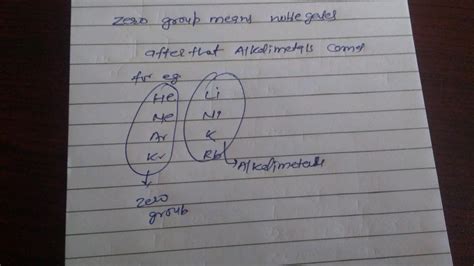 zero group means noble gases
after that Alkalimetals comes
for eg
He Li
Ne Ni
Ar K
Kr Rb
Alkalimetals
zero
group